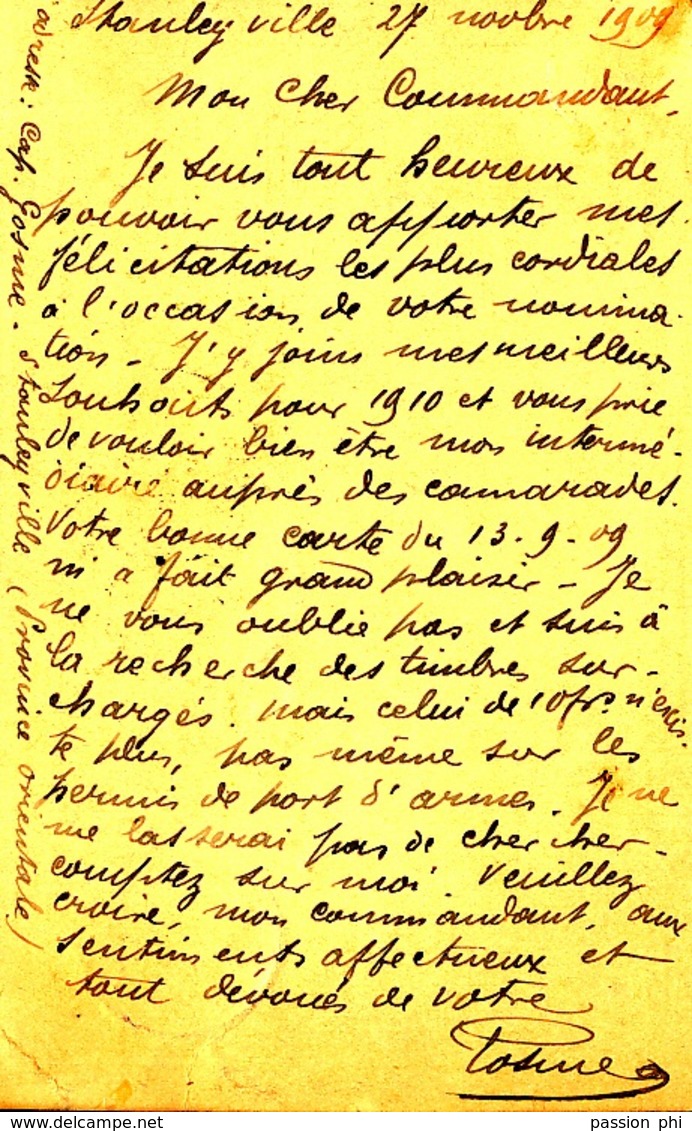 Stanleyville 27 novbre 1909
Mon Cher Commandant,
Je suis tout heureux de
pouvoir vous apporter mes
félicitations les plus cordiales
à l'occasion de votre nomina-
tion - J'y joins mes meilleurs
souhaits pour 1910 et vous prie
de vouloir bien être mon intermé-
diaire auprès des camarades.
Votre bonne carte du 13-9-09
m'a fait grand plaisir - Je
ne vous oublie pas et suis à
la recherche des timbres sur-
chargés. mais celui de 10 frs n'exis-
te plus, pas même sur les
permis de port d'armes. Je ne
me lasserai pas de chercher -
comptez sur moi. Veuillez
croire, mon commandant, aux
sentiments affectueux et
tout dévoués de votre
Gosme
adresse: Cap. Gosme - Stanleyville (Province orientale)
passion phi
www.delcampe.net